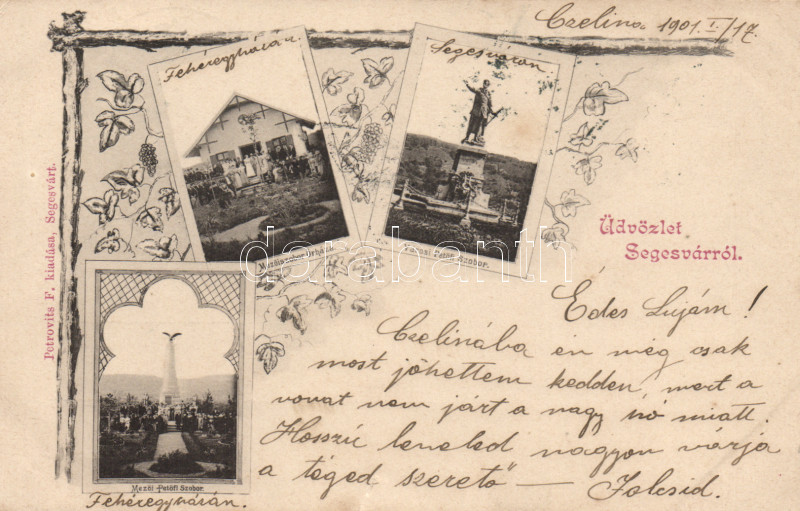 Czelina 1901. I/17.
Fehéregyházán
Segesváron
Petrovits F. kiadása, Segesvárt.
Városi Petőfi Szobor.
Üdvözlet
Segesvárról.
Mezői Petőfi Szobor
Fehéregyházán.
Édes Lujám!
Czelinába én még csak
most jöhettem kedden, mert a
vonat nem járt a nagy hó miatt.
Hosszú leveled nagyon várja
a téged szerető —